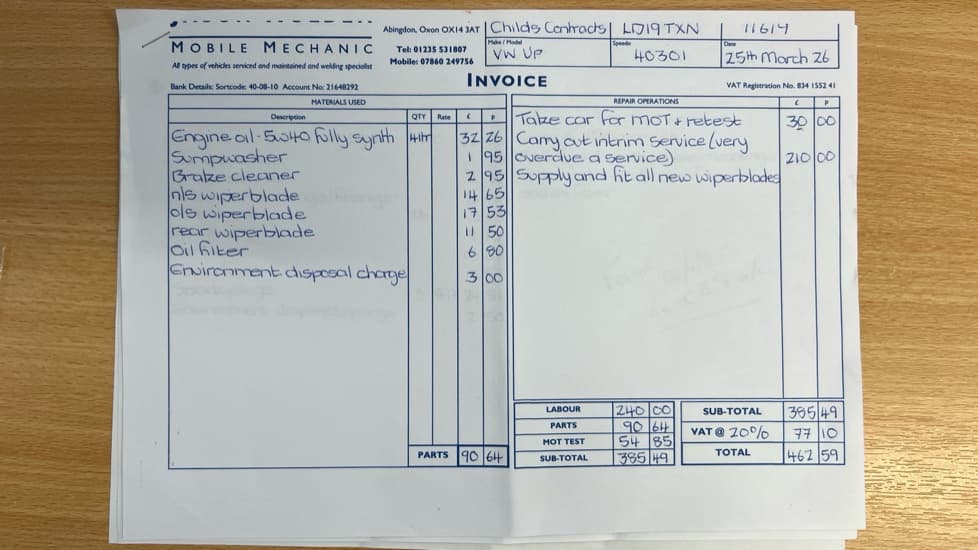 Abingdon, Oxon OX14 3AT
Childs Contracts
LD19 TXN
11614
MOBILE MECHANIC
Tel: 01235 531807
Mobile: 07860 249756
Make / Model
VW UP
Speedo
40301
Date
25th March 26
All types of vehicles serviced and maintained and welding specialist
INVOICE
Bank Details: Sortcode: 40-08-10 Account No: 21648292
VAT Registration No. 834 1552 41
MATERIALS USED
REPAIR OPERATIONS
£ P
Description QTY Rate £ P
Take car for MOT + retest 30 00
Engine oil - 5w40 fully synth 4ltr 32 26
Carry out intrim service (very
Sumpwasher 1 95
overdue a service) 210 00
Brake cleaner 2 95
Supply and fit all new wiperblades
n/s wiperblade 14 65
o/s wiperblade 17 53
rear wiperblade 11 50
Oil filter 6 80
Environment disposal charge 3 00
LABOUR 240 00
SUB-TOTAL 385 49
PARTS 90 64
VAT @ 20% 77 10
MOT TEST 54 85
PARTS 90 64
SUB-TOTAL 385 49
TOTAL 462 59